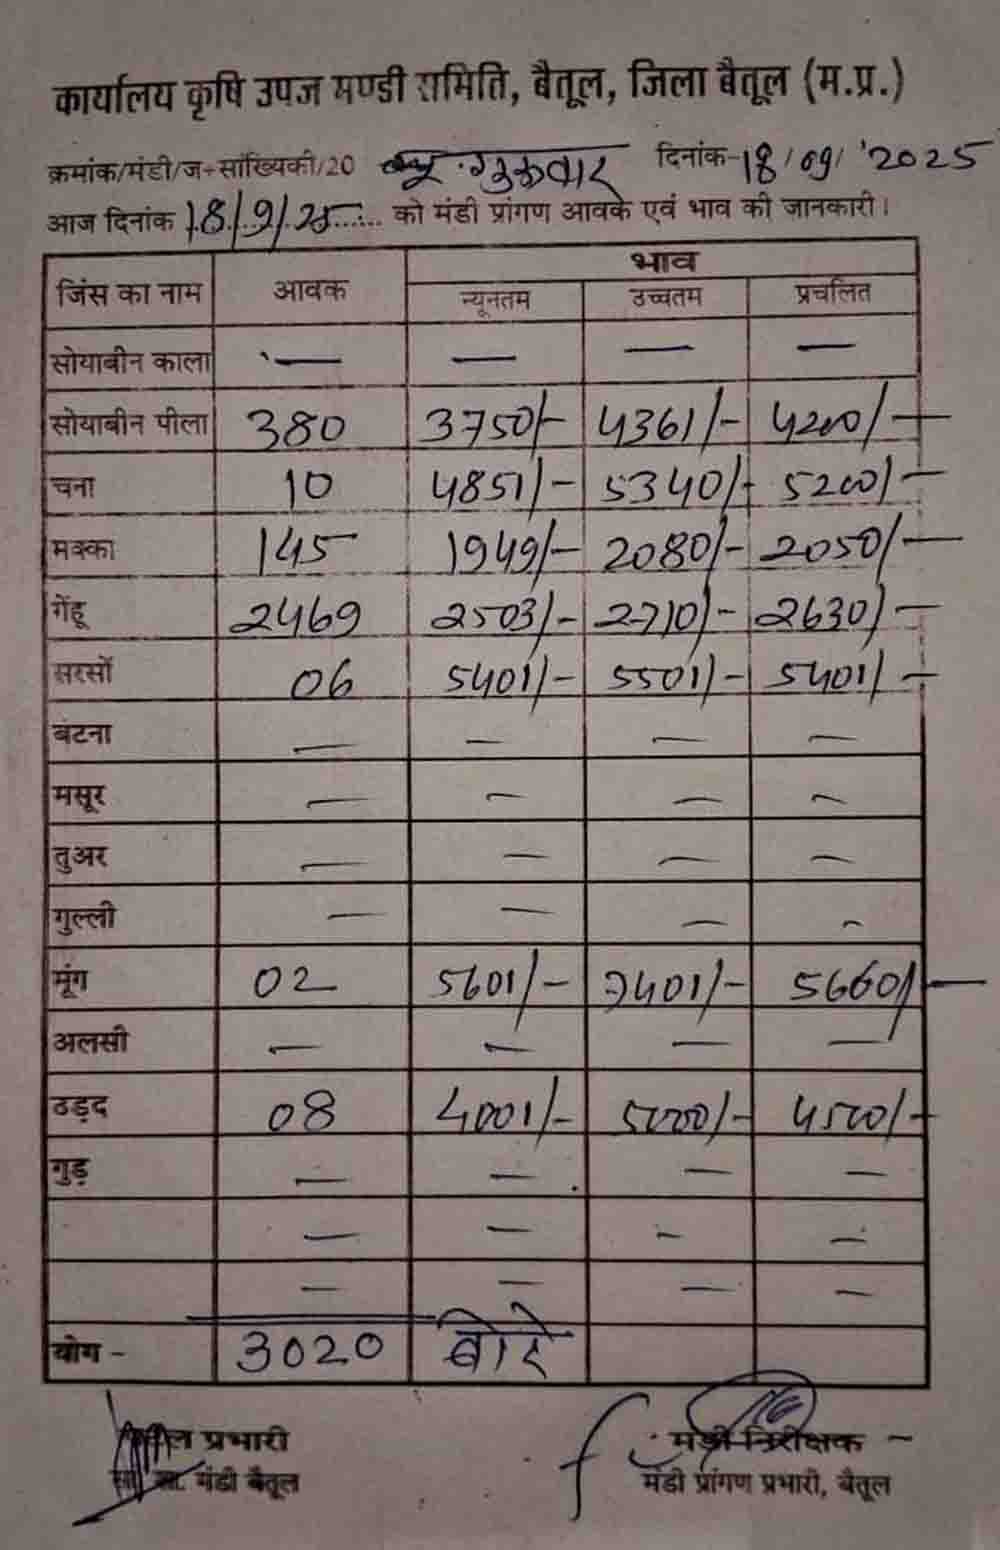 कार्यालय कृषि उपज मण्डी समिति, बैतूल, जिला बैतूल (म.प्र.)
क्रमांक/मंडी/ज-सांख्यिकी/20 गुरूवार दिनांक-18/09/'2025
आज दिनांक 18/9/25...... को मंडी प्रांगण आवक एवं भाव की जानकारी।
जिंस का नाम आवक भाव
न्यूनतम उच्चतम प्रचलित
सोयाबीन काला — — — —
सोयाबीन पीला 380 3750/- 4361/- 4200/-
चना 10 4851/- 5340/- 5200/-
मक्का 145 1949/- 2080/- 2050/-
गेंहू 2469 2503/- 2710/- 2630/-
सरसों 06 5401/- 5501/- 5401/-
बटना — — — —
मसूर — — — —
तुअर — — — —
गुल्ली — — — —
मूंग 02 5601/- 7401/- 5660/-
अलसी — — — —
उड़द 08 4001/- 5000/- 4500/-
गुड़ — — — —
— — — —
— — — —
योग - 3020 बोरे
प्रभारी मंडी निरीक्षक
मंडी बैतूल मंडी प्रांगण प्रभारी, बैतूल